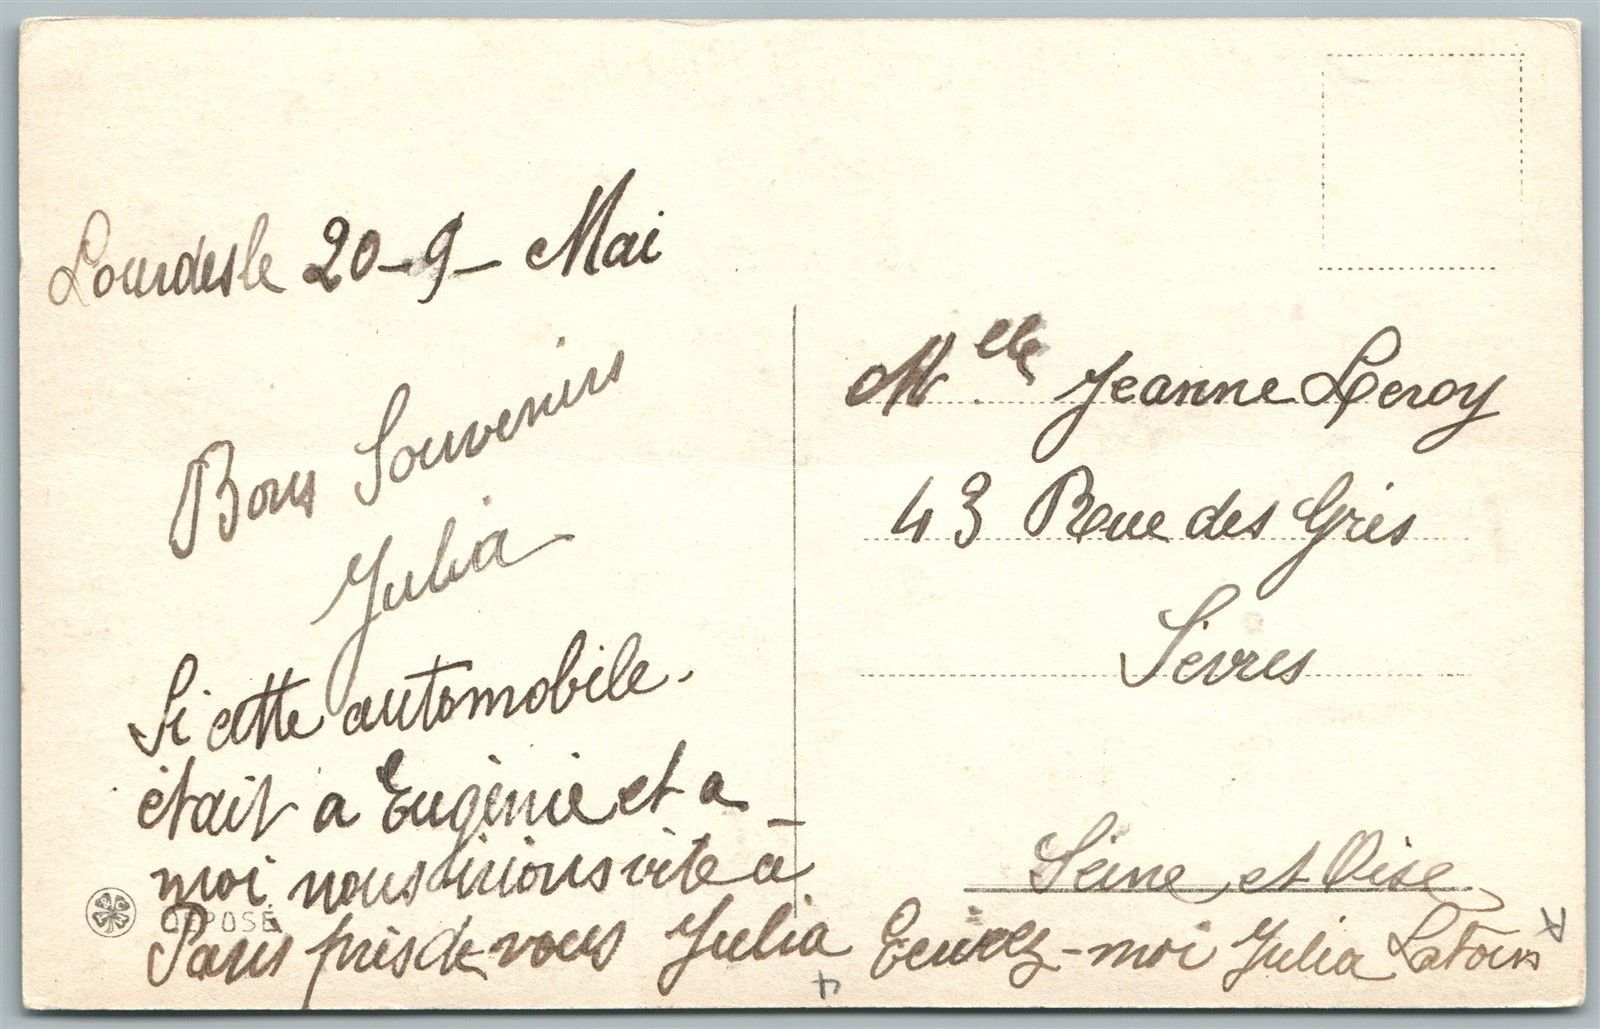 Lourdes le 20-9- Mai
Bons Souvenirs
Julia
Si cette automobile.
était a Eugénie et a
moi nous irions vite à
Paris près de vous Julia Ecrivez-moi Julia Latour
DEPOSÉ
Mlle Jeanne Leroy
43 Rue des Grès
Sèvres
Seine et Oise